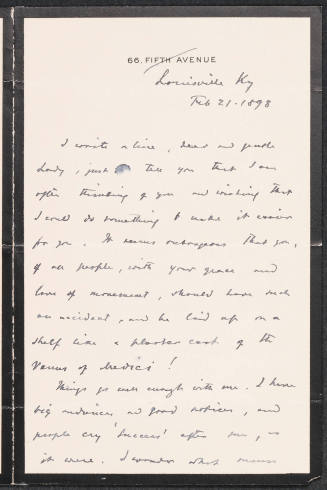 66. FIFTH AVENUE
Louisville Ky
Feb 21-1898
I write a line, dear and gentle
Lady, just to tell you that I am
often thinking of you and wishing that
I could do something to make it easier
for you. It seems outrageous that you,
of all people, with your grace and
love of movement, should have such
an accident, and be laid up on a
shelf like a plaster cast of the
Venus of Medici!
Things go well enough with me. I have
big audiences and good notices, and
people cry 'success' after me, as
it were. I wonder what